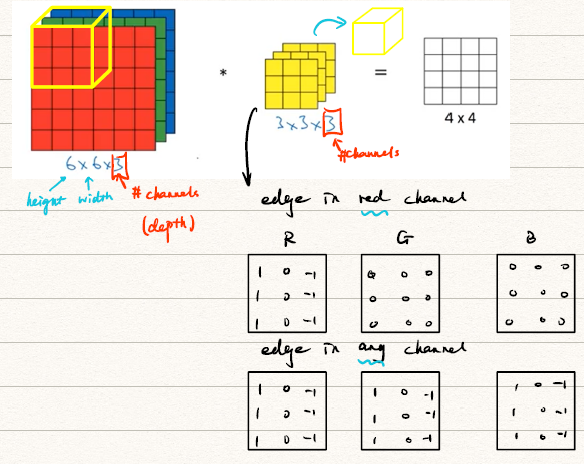 * =
3 x 3 x 3
4 x 4
6 x 6 x 3
# channels
height width # channels
(depth)
edge in red channel
R G B
1 0 -1 0 0 0 0 0 0
1 0 -1 0 0 0 0 0 0
1 0 -1 0 0 0 0 0 0
edge in any channel
1 0 -1 1 0 -1 1 0 -1
1 0 -1 1 0 -1 1 0 -1
1 0 -1 1 0 -1 1 0 -1